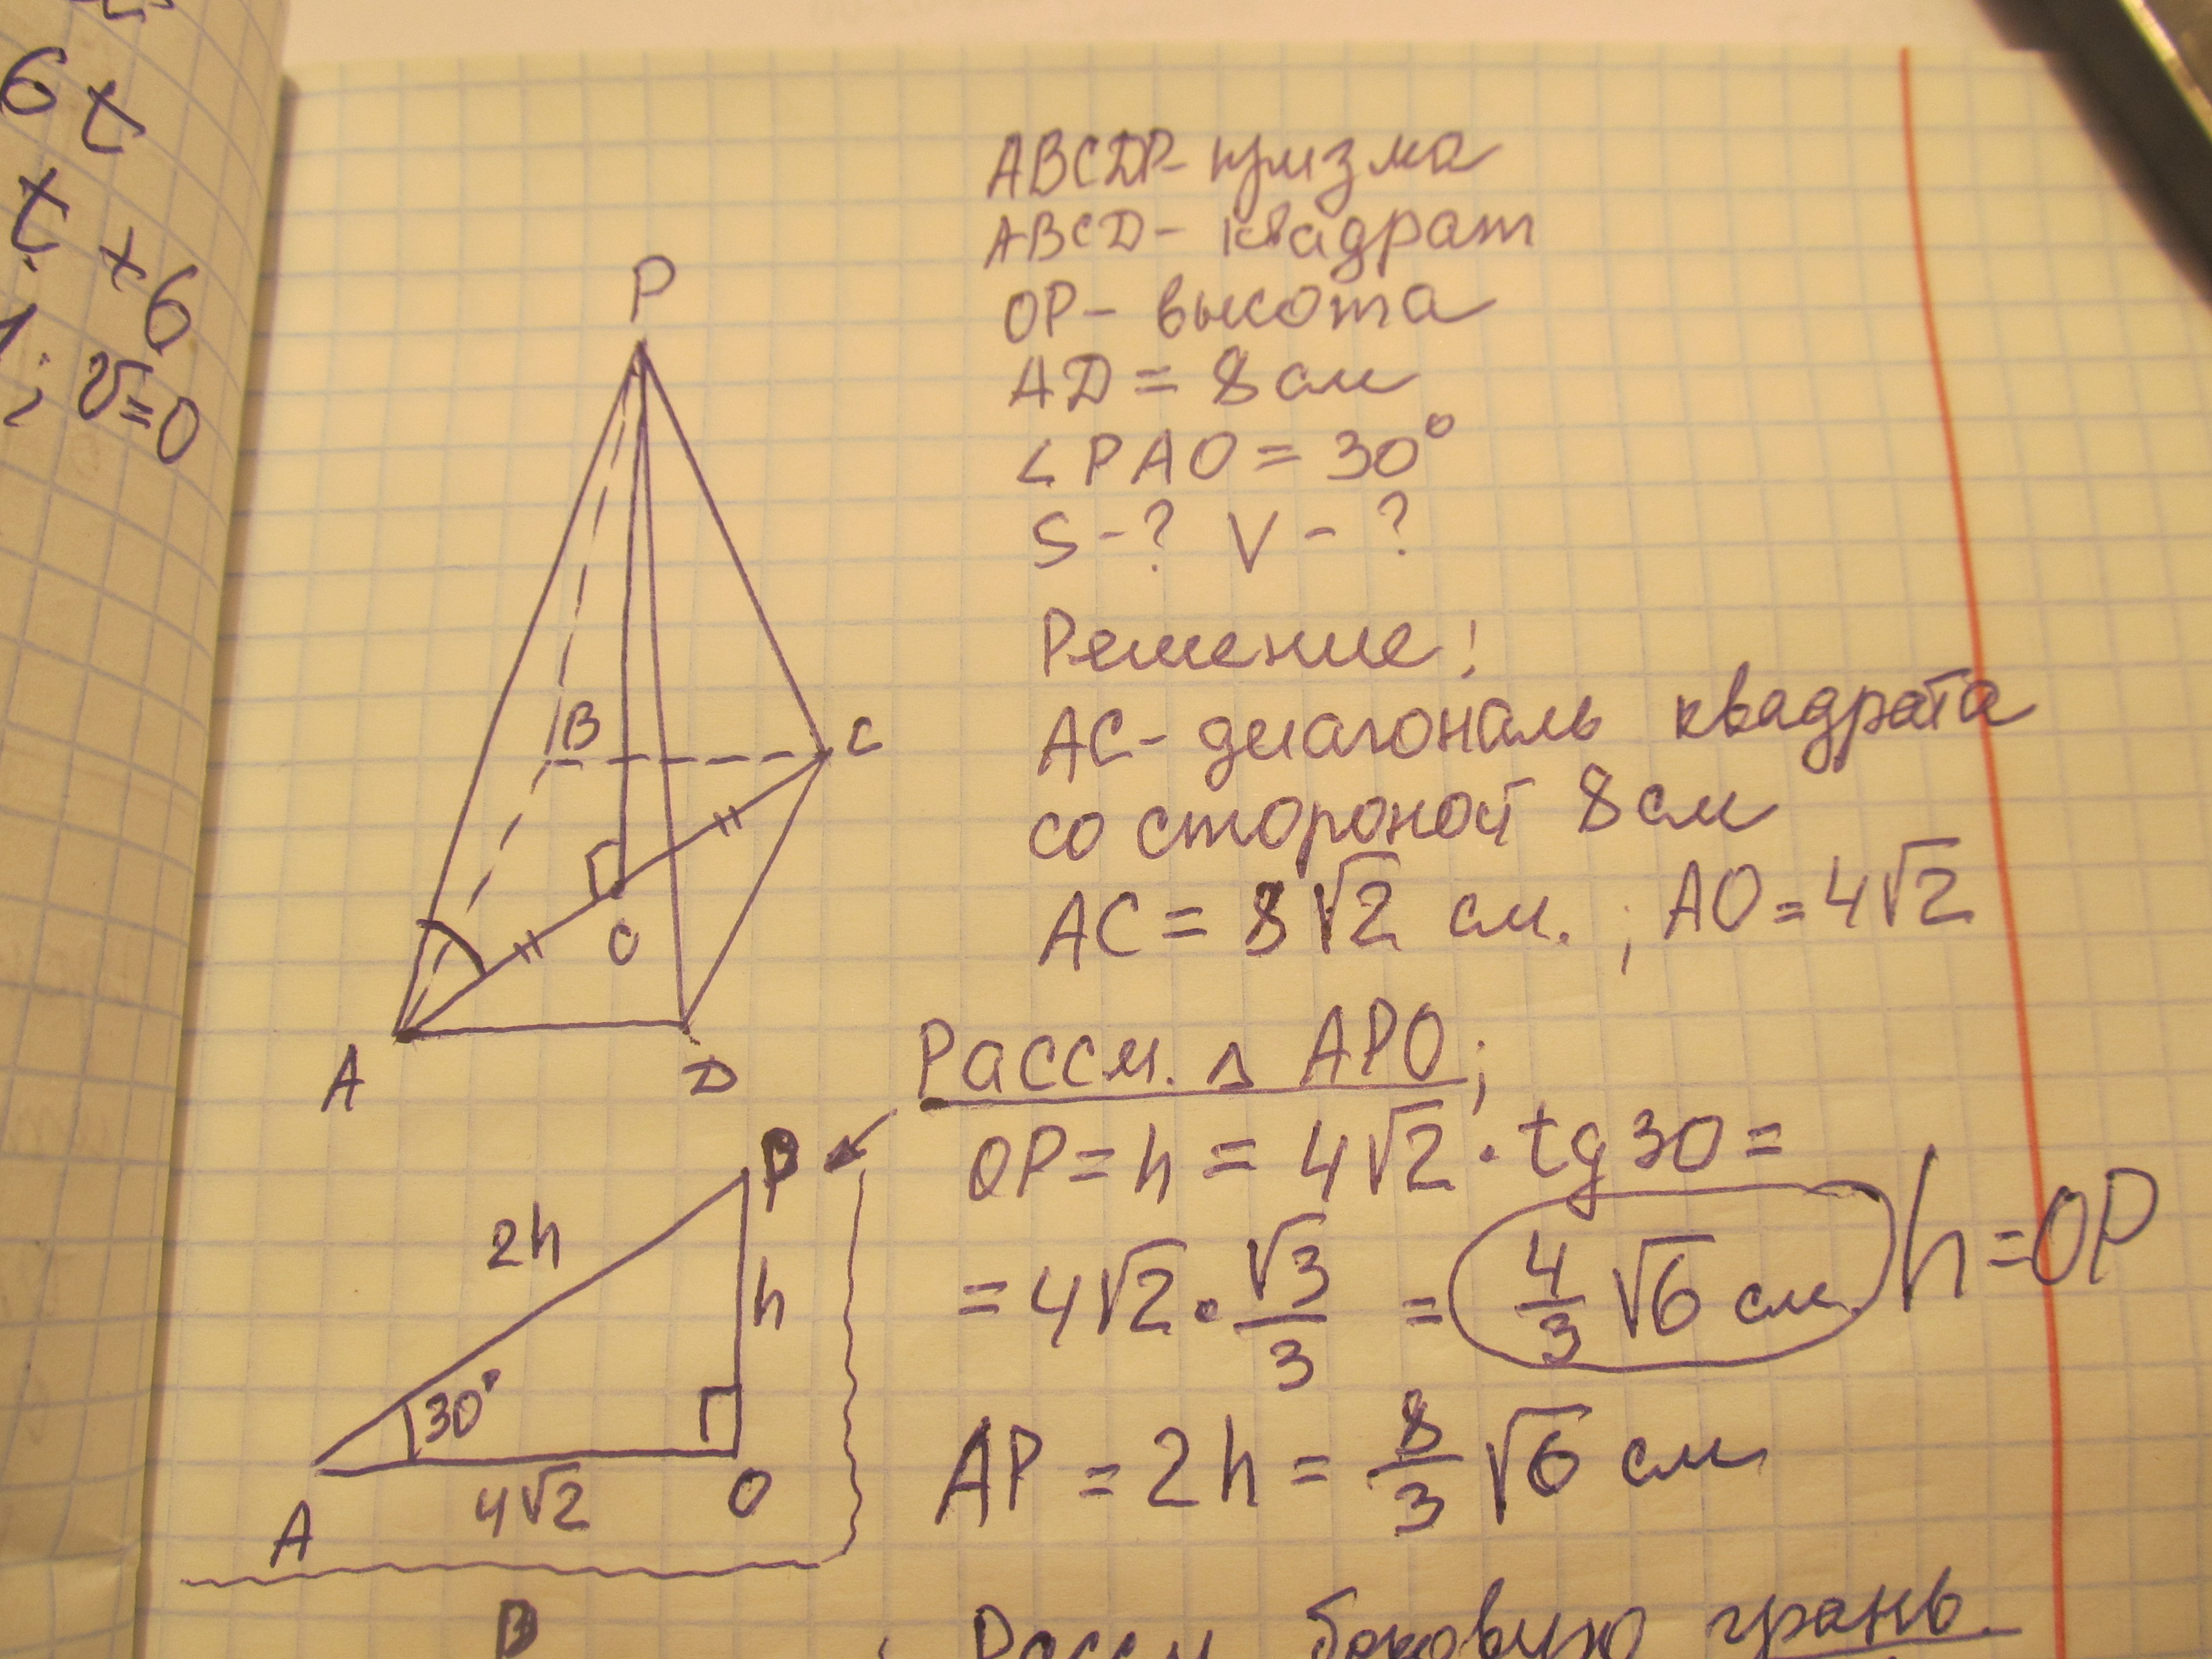 6t
t
+6
; v=0
ABCDP- призма
ABCD- квадрат
OP- высота
AD = 8 см
∠PAO = 30°
S-? V-?
Решение:
AC- диагональ квадрата
со стороной 8 см
AC = 8√2 см. ; AO = 4√2
P
B
C
O
A
D
Рассм. △ APO;
OP = h = 4√2 · tg 30 =
= 4√2 · √3/3 = 4/3 √6 см h = OP
AP = 2h = 8/3 √6 см
P
2h
h
30°
4√2
A
O
Рассм боковую грань.